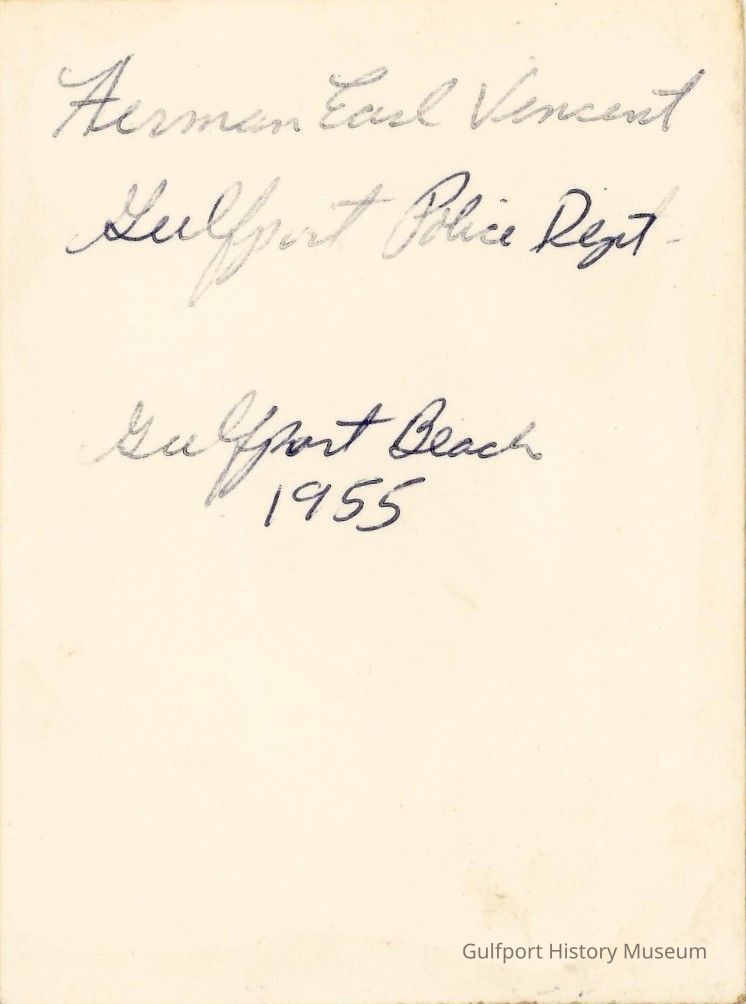 Herman Earl Vincent
Gulfport Police Dept.
Gulfport Beach
1955
Gulfport History Museum